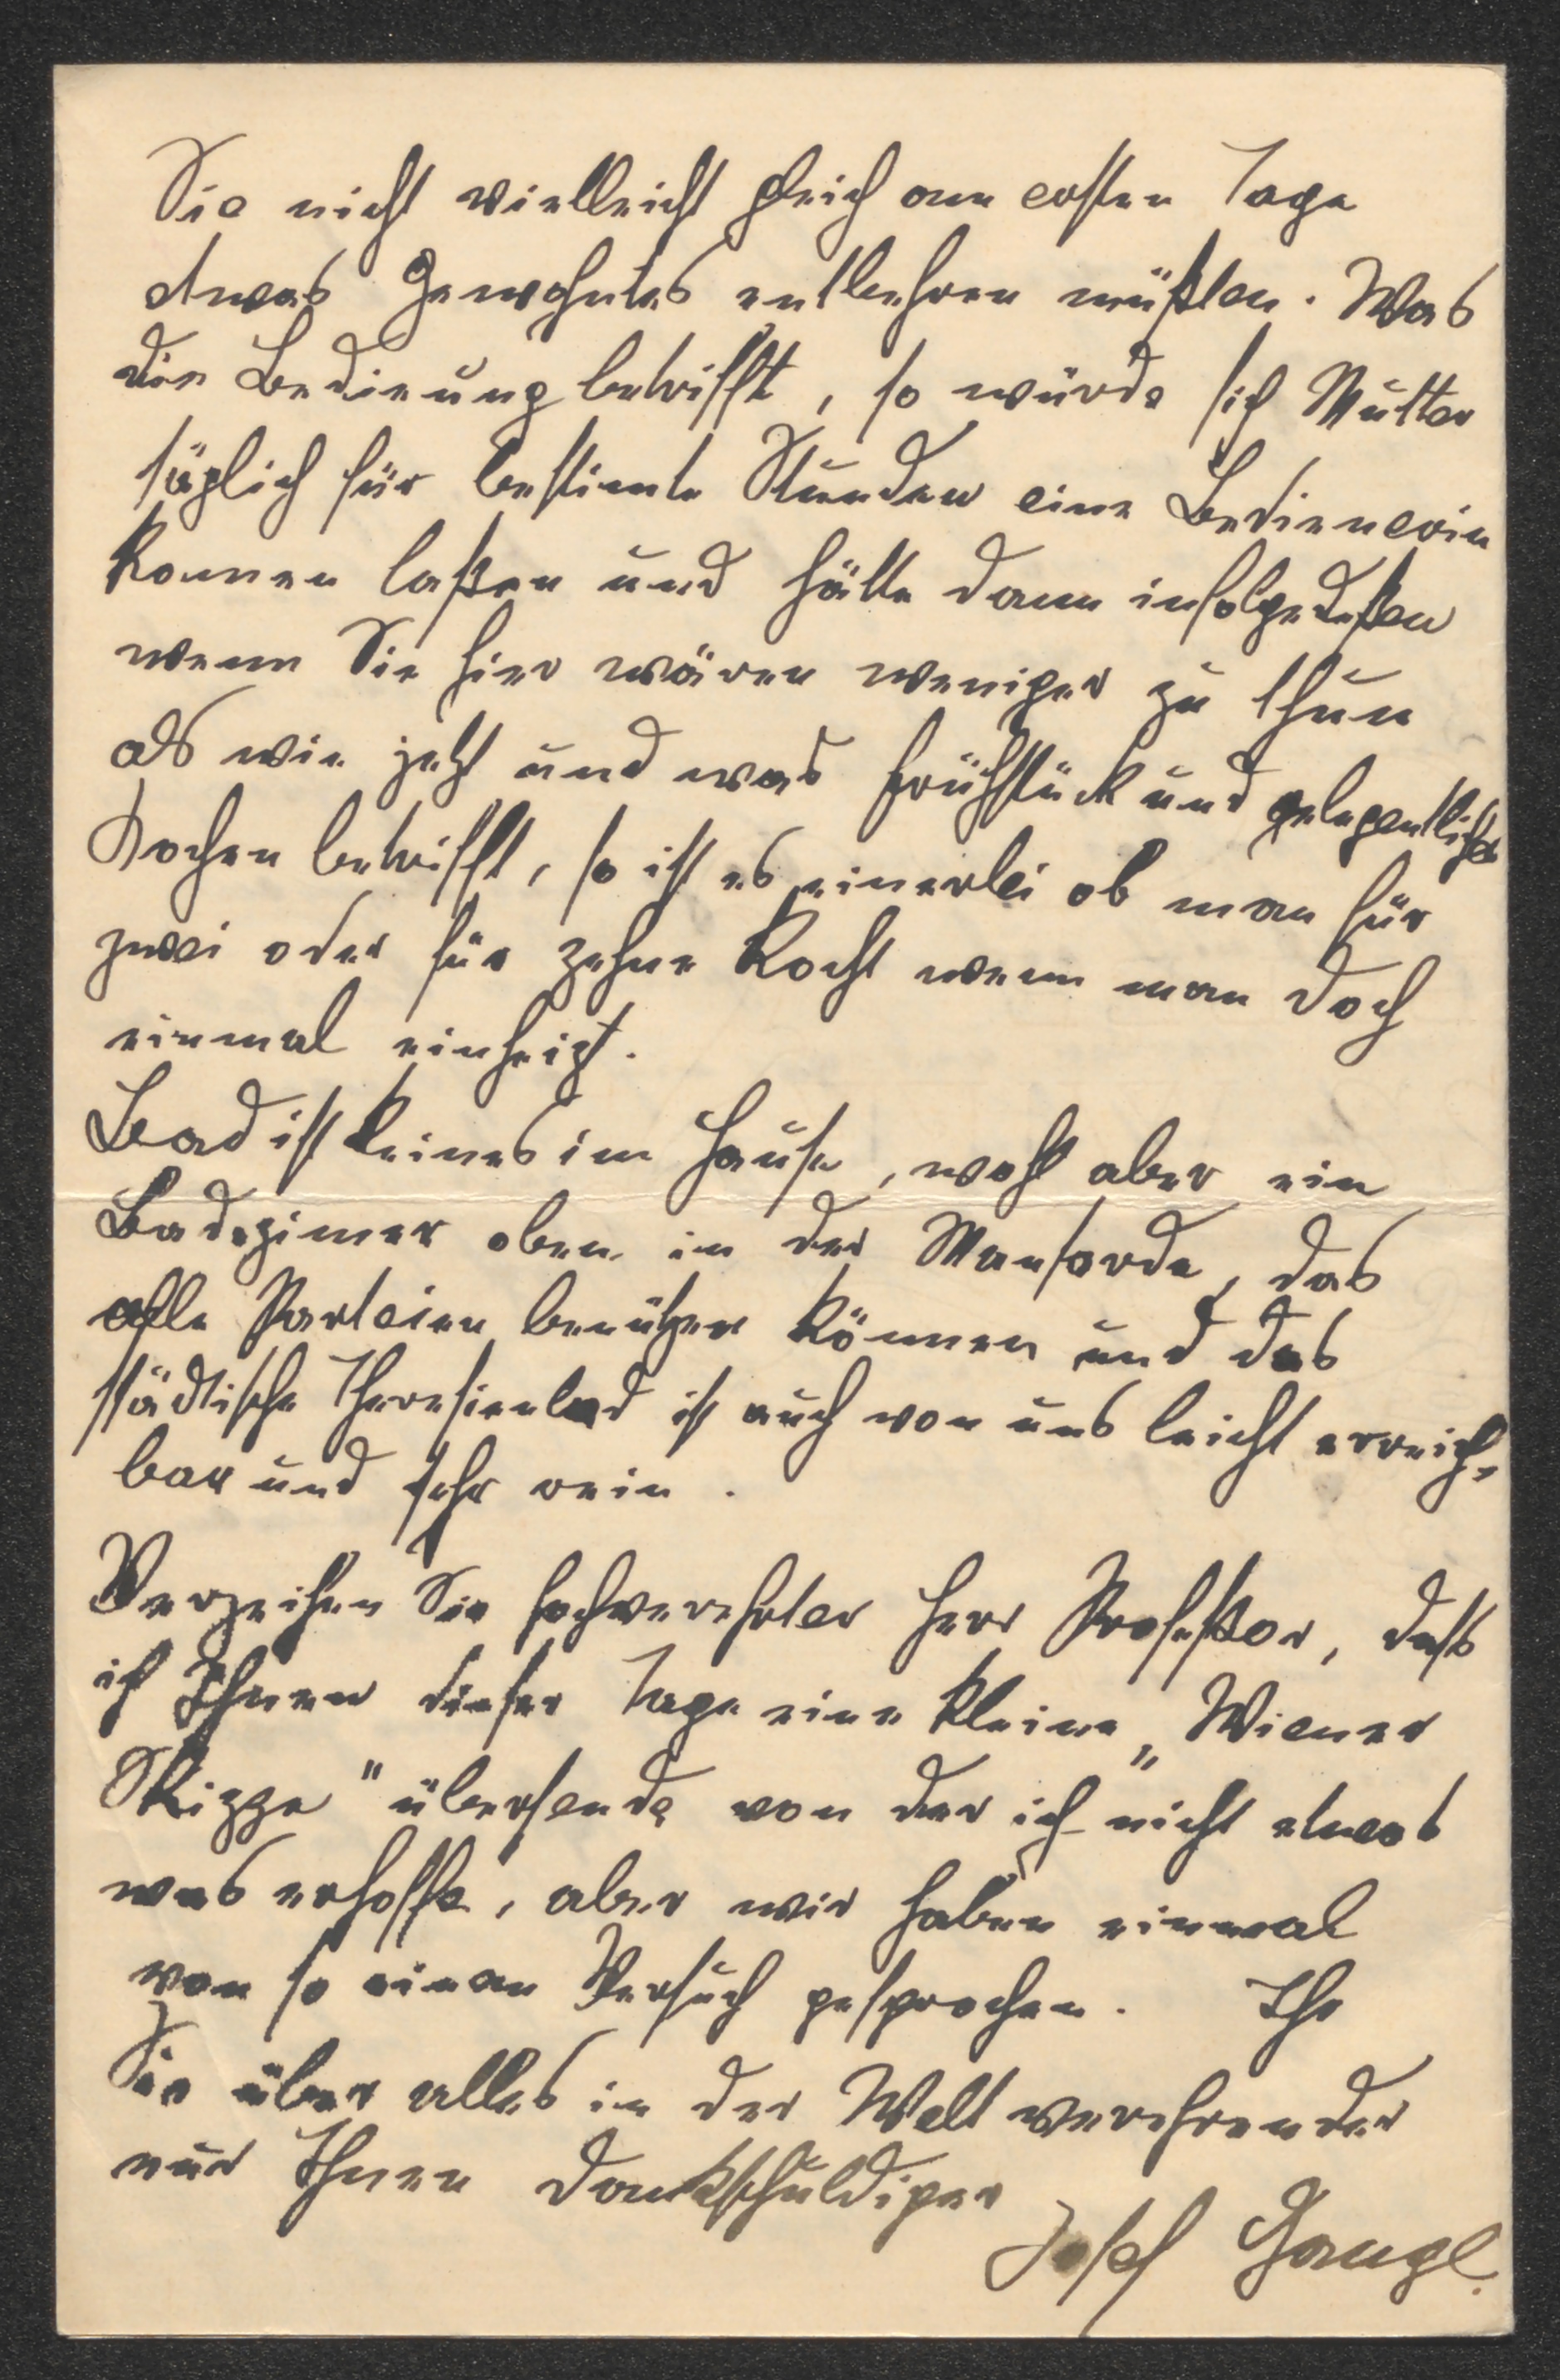 Sie nicht vielleicht gleich am ersten Tage
etwas Gewohntes entbehren müßten. Was
die Bedienung betrifft, so würde sich Mutter
täglich für bestimte Stunden eine Bedienerin
komen laßen und hätte dann infolgedeßen
wenn Sie hier wären weniger zu thun
als wie jetzt und was Frühstück und gelegentliches
Kochen betrifft, so ist es einerlei ob man für
zwei oder für zehne kocht wenn man doch
einmal einheizt.
Bad ist keines im Hause, wohl aber ein
Badezimer oben in der Mansarde, das
alle Parteien benützen können und das
städtische Theresienbad ist auch von uns leicht erreich-
bar und sehr rein.
Verzeihen Sie hochverehrter Herr Profeßor, daß
ich Ihnen dieser Tage eine kleine „Wiener
Skizze" übersende von der ich nicht etwas
was erhoffe, aber wir haben einmal
von so einem Versuch gesprochen. Ihr
Sie über alles in der Welt verehrender
nur Ihnen dankschuldiger
Josef Gangl.